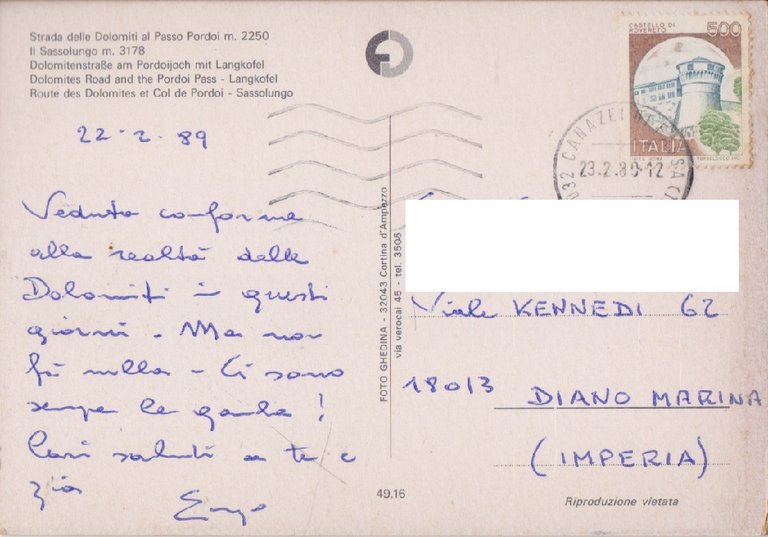 Strada delle Dolomiti al Passo Pordoi m. 2250
Il Sassolungo m. 3178
Dolomitenstraße am Pordoijoch mit Langkofel
Dolomites Road and the Pordoi Pass - Langkofel
Route des Dolomites et Col de Pordoi - Sassolungo
22-2-89
Veduta conforme
alla realtà delle
Dolomiti in questi
giorni - Ma non
fà nulla - Ci sono
sempre le gambe!
Cari saluti a te e
zia
Enzo
FOTO GHEDINA - 32043 Cortina d'Ampezzo
via verocai 45 - tel. 3508
49.16
CASTELLO DI
ROVERETO
500
ITALIA
CANAZEI
23.2.89-12
Viale KENNEDI 62
18013 DIANO MARINA
(IMPERIA)
Riproduzione vietata